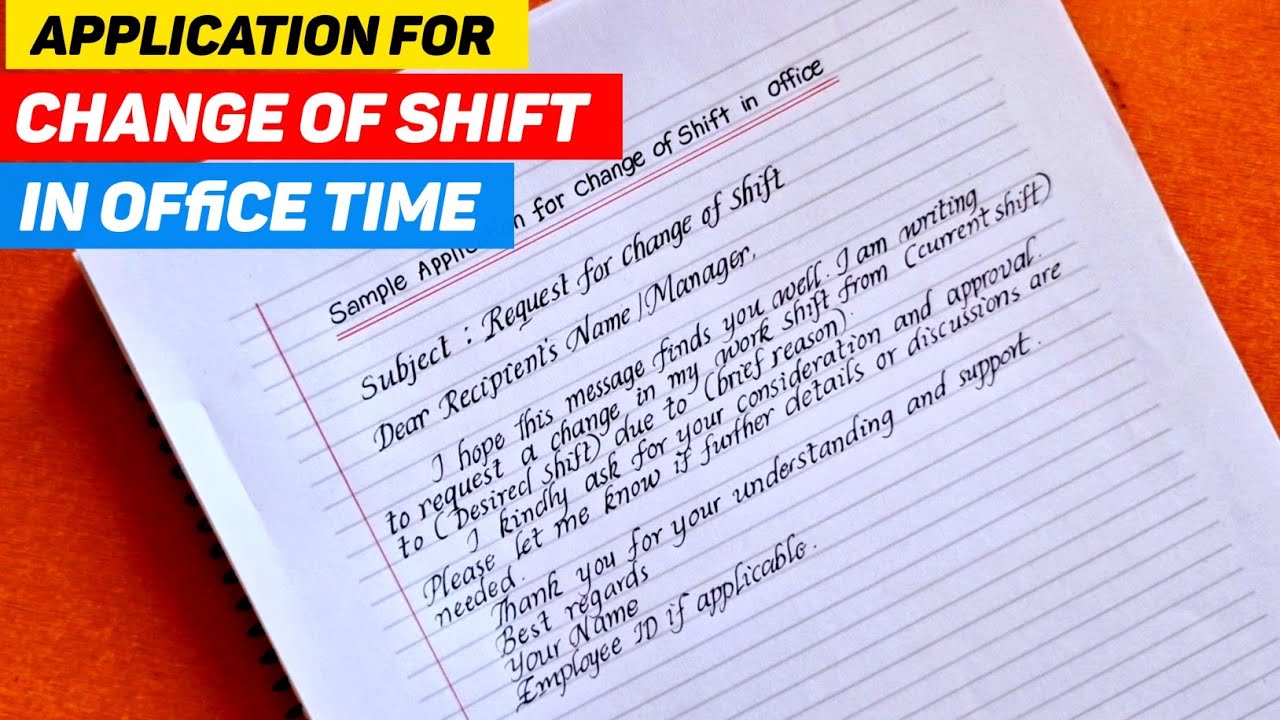 APPLICATION FOR
CHANGE OF SHIFT
IN OFFICE TIME
Sample Application for Change of Shift in office
Subject : Request for change of shift
Dear Recipient's Name/Manager,
I hope this message finds you well. I am writing
to request a change in my work shift from (current shift)
to (Desired shift) due to (brief reason).
I kindly ask for your consideration and approval.
Please let me know if further details or discussions are
needed.
Thank you for your understanding and support.
Best regards
Your Name
Employee ID if applicable.